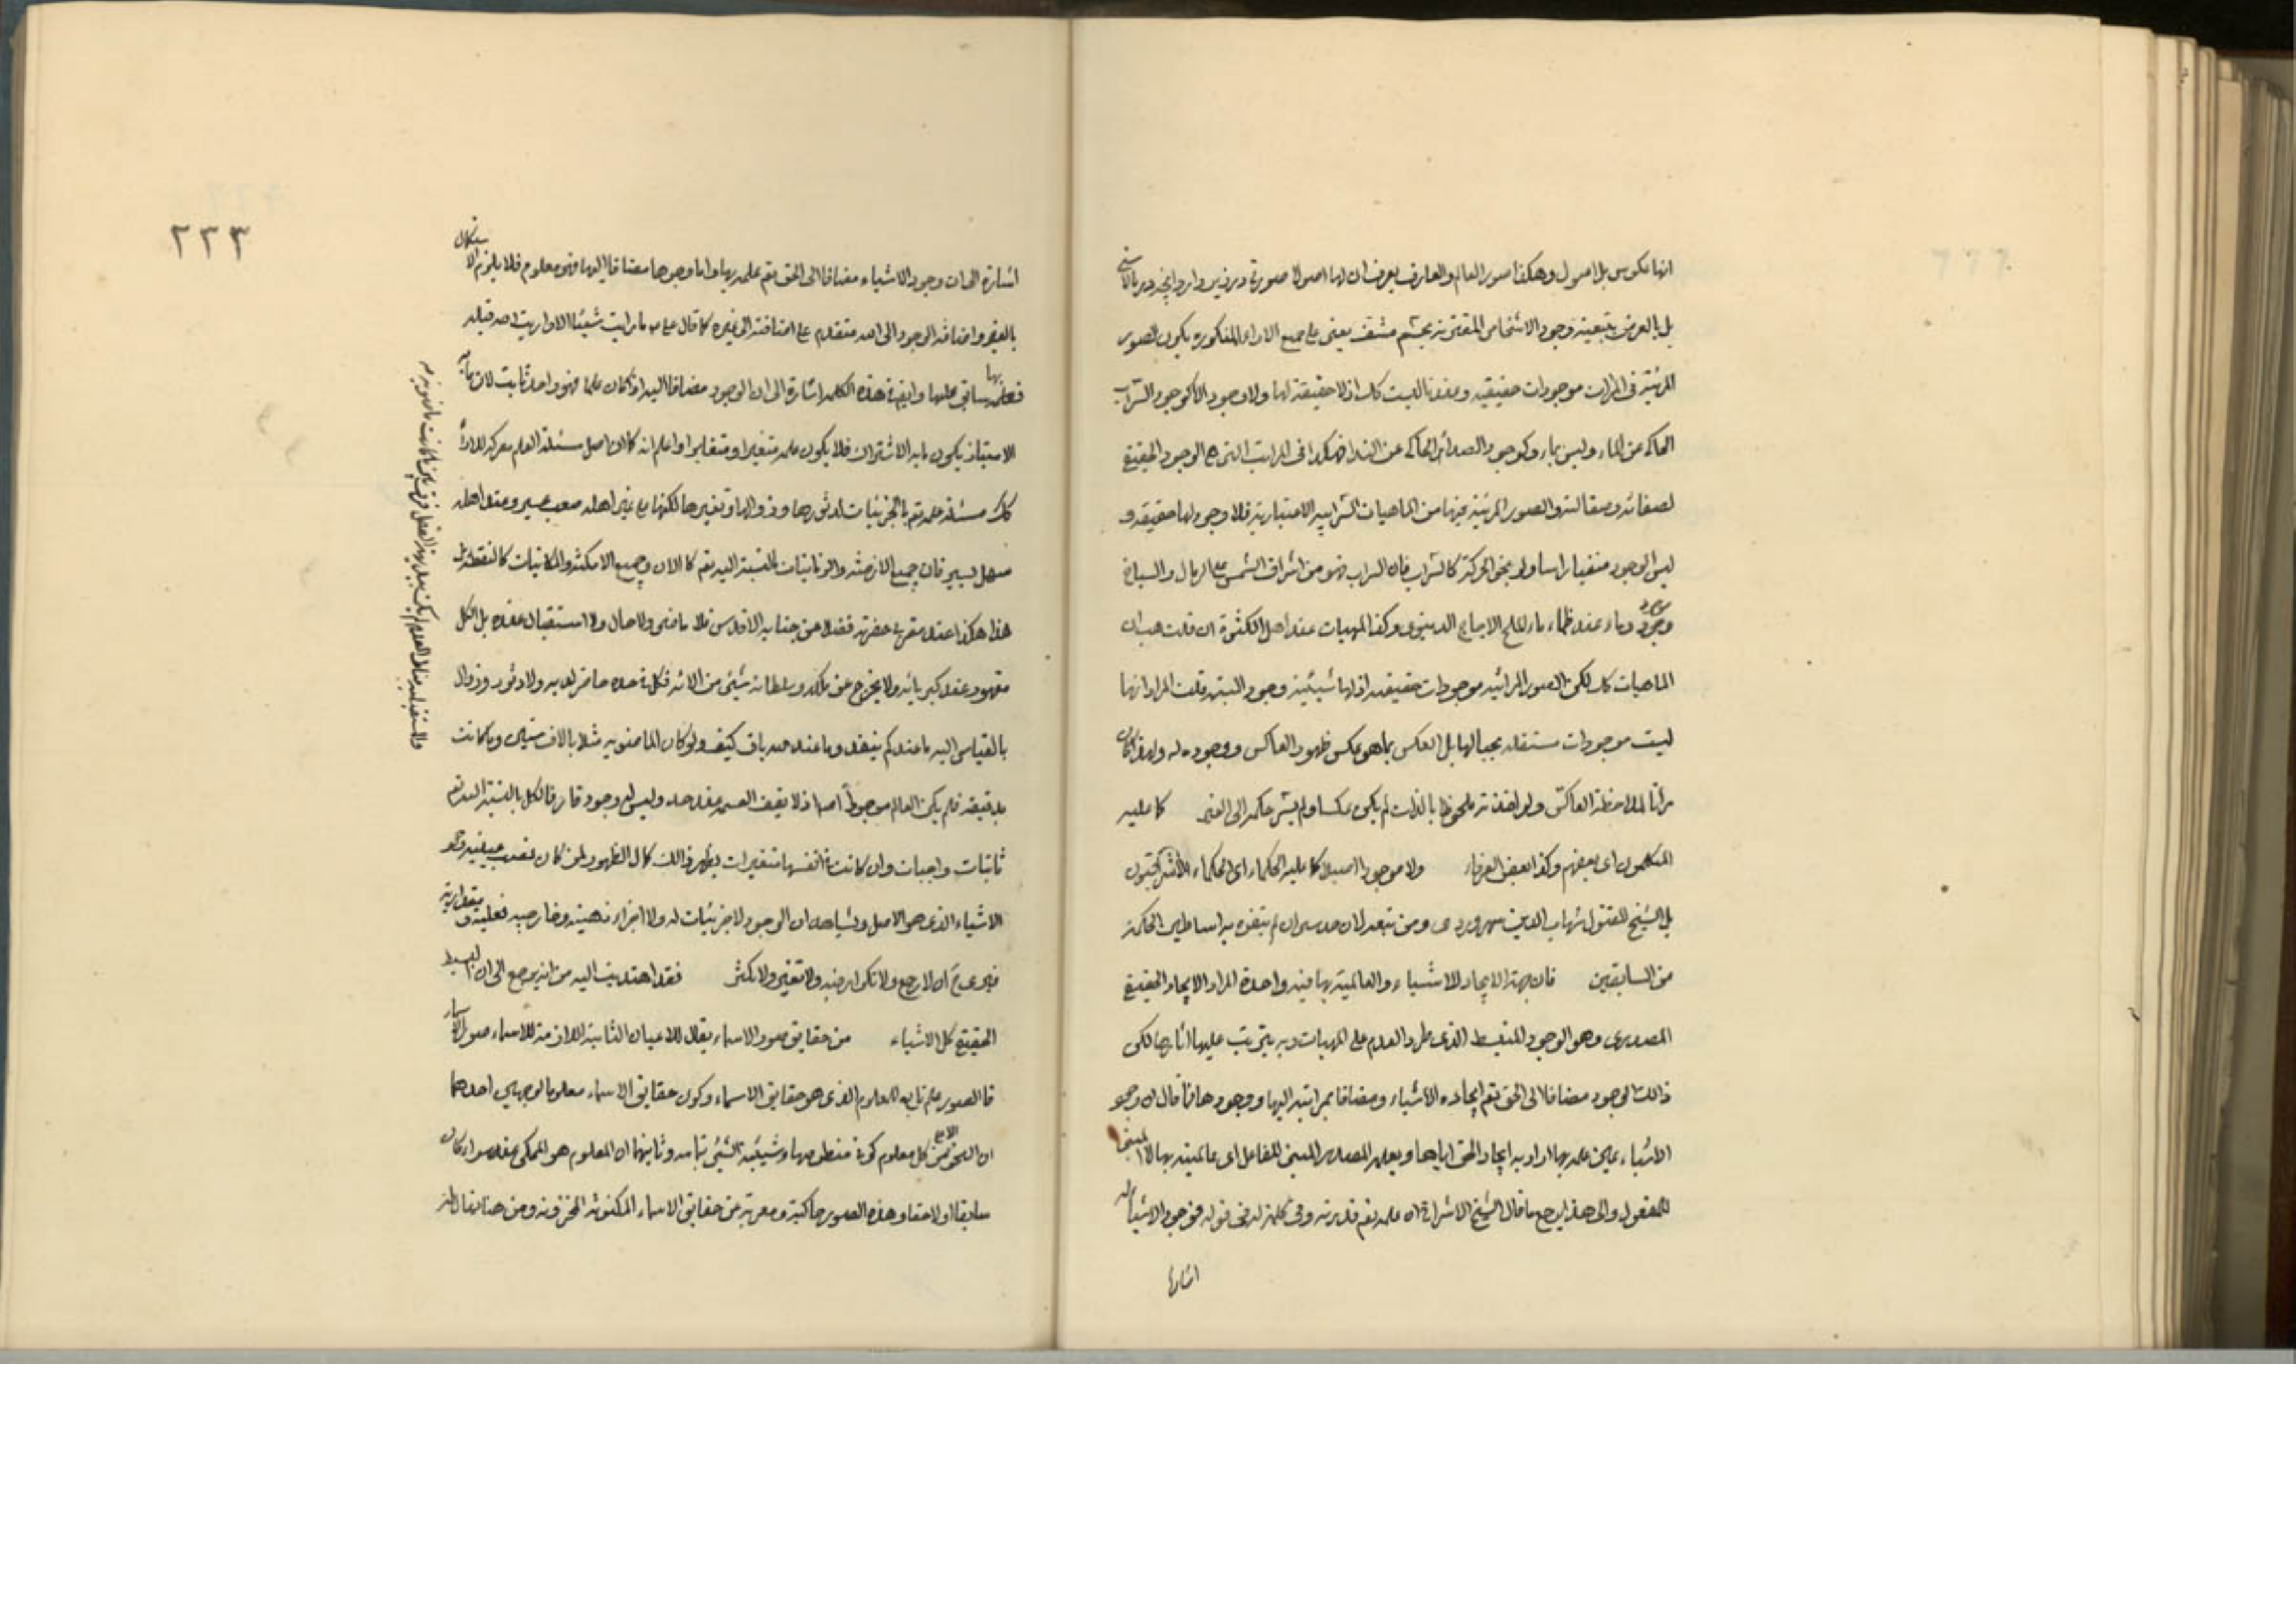 انها عكوس بل اصول وهكذا صور العالم والعارف يعرف ان لها اصولا صورة در زير دارد انچه در بالاستى
بل بالعرض بتبعية وجود الاشخاص المقترنة بجسم مشف يعنى على جميع الاراء المذكورة يكون الصور
المرئية فى المرات موجودات حقيقيه وعندنا ليست كك اذ لا حقيقة لها ولا وجود الا كوجود السراب
الحاكى عن الماء وليس بماء وكوجود الصداء الحاكى عن النداء فهكذا فى المرايت التى هى الوجود الحقيقى
لصفائه وصقالته والصور المرئية فيها من الماهيات السرابيه الاعتبارية فلا وجود لها حقيقه و
ليس الوجود منفيا راسا ولو بنحو الحركة كالسراب فان السراب فهو من اشراق الشمس على الرمال والسباخ
وجود وماء عند ظماء ماء الملح الاجاج الدنيوى وكذا المهيات عند اهل الكثرة ان قلت هب ان
الماهيات كك لكن الصور المرائيه موجودات حقيقيه اذ لها شيئية وجود البته قلت المراد انها
ليست موجودات مستقله بحيالها بل العكس بما هو عكس ظهور العاكس ووجوده له ولهذا كان
مرآتا لملاحظة العاكس ولو اخذته ملحوظا بالذات لم يكن عكسا ولم يسر حكمه الى الغير كما عليه
المتكلمون اى بعضهم وكذا بعض العرفاء ولا موجودا اصيلا كما عليه الحكماء اى الحكماء الاشراقيون
بل الشيخ المقتول شهاب الدين سهروردى ومن تبعه لان حدسى ان لم يتفوه به اساطين الحكمة
من السابقين فان جهة الايجاد للاشياء والعالمية بها فيه واحدة المراد الايجاد الحقيقى
المصدرى وهو الوجود المنبسط الذى طرد العدم على المهيات وبه يترتب عليها اثارها لكن
ذلك الوجود مضافا الى الحق تعم ايجاده الاشياء ومضافا بمراتبه اليها وجودها فما قال ان وجود
الاشياء عين علمه بها اراد به ايجاد الحق اياها وبعلمه المصدر المبنى للفاعل اى عالميته بها لا المبنى
للمفعول والى هذا يرجع ما قال الشيخ الاشراق ان علمه تعم قدرته وفى كلمة له فى قوله فوجود الاشياء له
اشارة
٢٢٣
اشارة الى ان وجود الاشياء مضافا الى الحق تعم علمه بها واما وجوها مضافا اليها فهى معلوم فلا يلزم الاستكمال
بالغير واضافة الوجود الى الله متقدم على اضافته الى غيره كما قال على ع ما رايت شيئا الا ورايت الله قبله
فعلمه بها سابق عليها وايضا فى هذه الكلمه اشارة الى ان الوجود مضافا اليه اذا كان علما فهو واحد ثابت لان ما به
الامتياز يكون ما به الاشتراك فلا يكون علمه متغيرا ومتقلبا واعلم انه كما ان اصل مسئلة العلم معركة للآراء
كك مسئلة علمه تعم بالجزئيات لدثورها وزوالها وتغيرها لكنها على غير اهله صعب عسير وعند اهله
سهل يسير فان جميع الازمنة والزمانيات بالنسبة اليه تعم كالان وجميع الامكنة والمكانيات كالنقطه بل
هذا هكذا عند مقربى حضرته فضلا عن جنابه الاقدس فلا ماضى ولا حال ولا استقبال عنده بل الكل
مقهور عند كبريائه ولا يخرج عن ملكه وسلطانه شيئى من الانه فكل فى حده حاضر لديه ولا دثور وزوال
بالقياس اليه ما عندكم ينفد وما عند الله باق كيف ولو كان الماضويه مثلا بالاف سنين وما كانت
بدقيقه فلم يكن العالم موجودا اصلا اذ لا يقف القسمه عند حد وليس له وجود قار فالكل بالنسبة اليه تعم
ثابتات واجبات وان كانت فى انفسها متغيرات يظهر ذلك كمال الظهور لمن كان نصب عينيه وجود
الاشياء الذى هو الاصل ويشاهد ان الوجود لا جزئيات له ولا اجزاء ذهنيه وخارجيه فعليه و مقداريه
فيدرى ح ان لا رجع ولا تكرار فيه ولا تغير ولا تكثر فقد اهتديت اليه من انه يرجع الى ان البسيط
الحقيقى كل الاشياء من حقايق صور الاسماء يقال للاعيان الثابتة اللازمة للاسماء صور الاسماء
فالصور علم تابع للمعلوم الذى هو حقايق الاسماء وكون حقايق الاسماء معلوما لوجهين احدهما
ان النحو الاعلى من كل معلوم كونى منطو فيها وشيئية الشيئى بتمامه وثانيهما ان المعلوم هو المحكى عنه سواء كان
سابقا او لاحقا وهذه الصور حاكية ومعربة عن حقايق الاسماء المكنونة المخزونة ومن هنا يقال له